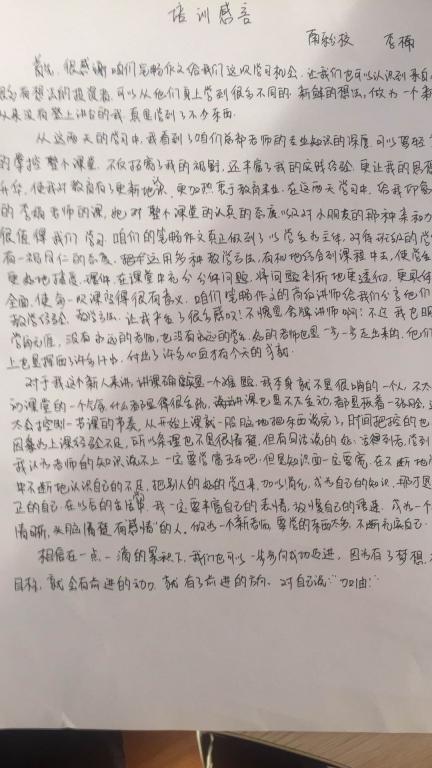 培训感言
南 校 李楠
首先,很感谢咱们笔畅作文给我们这次学习机会,让我们也可以认识到来自
很多有想法的投资者,可以从他们身上学到很多不同的,新鲜的想法,做为一个新
从来没有登上讲台的我,真是学到了不少东西。
从这两天的学习中,我看到了咱们总部老师的专业知识的深度,可以驾轻
的掌控整个课堂,不仅拓宽了我的视野,还丰富了我的实践经验,更让我的思想
升华,使我对教育有了更新地 ,更加热衷于教育事业,在这两天学习中,给我印象
的李楠老师的课,她对整个课堂的认真的态度以及对小朋友的那种亲和力
很值得我们学习,咱们的笔畅作文真正做到了以学生为主体,对待班级的学
有一视同仁的态度,把 运用多种教学方法,有机地结合到课程中去,使学生
更好地接受、理解,在课堂中充分 问题,将问题剖析地更透彻,更具体
全面,使每一次课写得很有意义,咱们笔畅作文的高级讲师给我们分享他们
教学经验,教学方法,让我产生了很多感叹:不愧是金牌讲师啊!不过我也明
学尚无涯,没有永远的老师,也没有永远的学生,好的老师也是一步一步走出来的,他们
上也是挥洒了许多汗水,付出了许多心血才有今天的成就。
对于我这个新人来讲,讲课确实是一个难题,我本身就不是很哨的一个人,不太
动课堂的一个气氛,什么都显得很生疏,说话讲课也是不太生动,都是板着一张脸,
太会控制一节课的节奏,从开始上课就一股脑地把东西说完了,时间把控的也
因素为上课经验不足,所以条理也不是很清楚,但有句话说的好:活到老,学到
我认为老师的知识说不上一定要学富五车吧,但是知识面一定要宽,在不断地
中不断地认识自己的不足,把别人的好的学过来,加以消化,成为自己的知识,那才是
正的自己,在以后的 ,我一定要丰富自己的表情,放慢自己的语速,成为一个
清晰,头脑清楚有感情的人。做为一个新老师,要学的东西太多,不断充实自己
相信在一点一滴的累积下,我们也可以一步步向成功迈进,因为有了梦想,
目标,就会有前进的动力,就有了前进的方向,对自己说:“加油!”